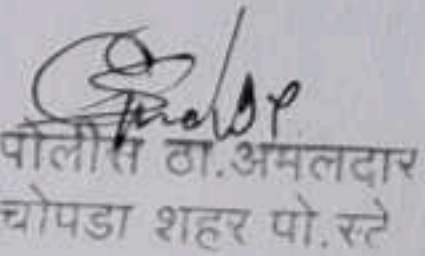 पोलीस ठा.अमलदार
चोपडा शहर पो.स्टे